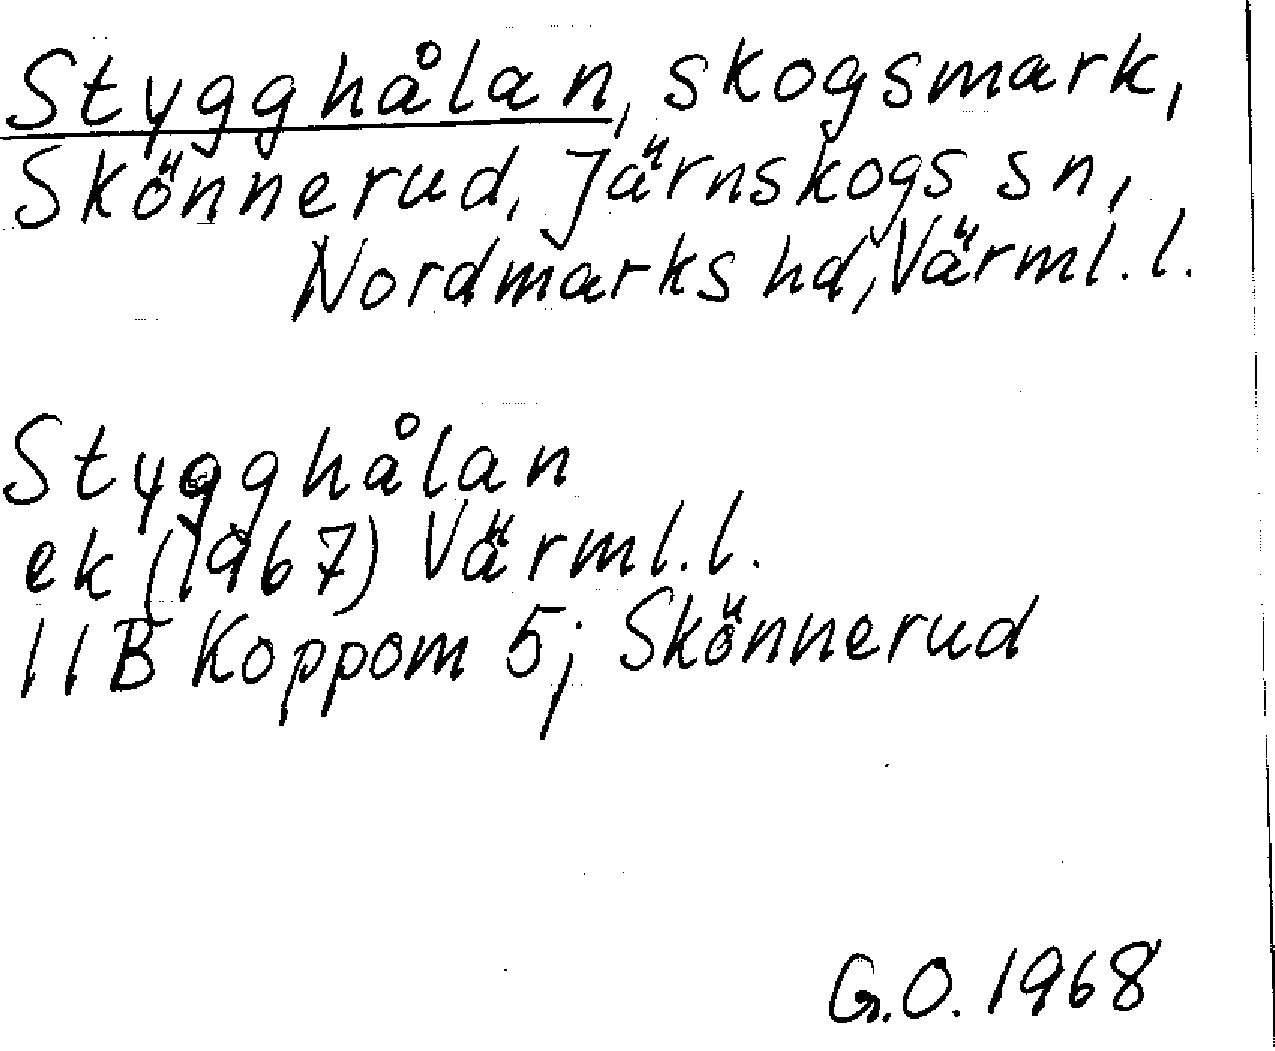 Stygghålan, skogsmark,
Skönnerud, Järnskogs sn,
Nordmarks hd, Värml. l.
Stygghålan
ek (1967) Värml. l.
11B Koppom 5; Skönnerud
G.O. 1968